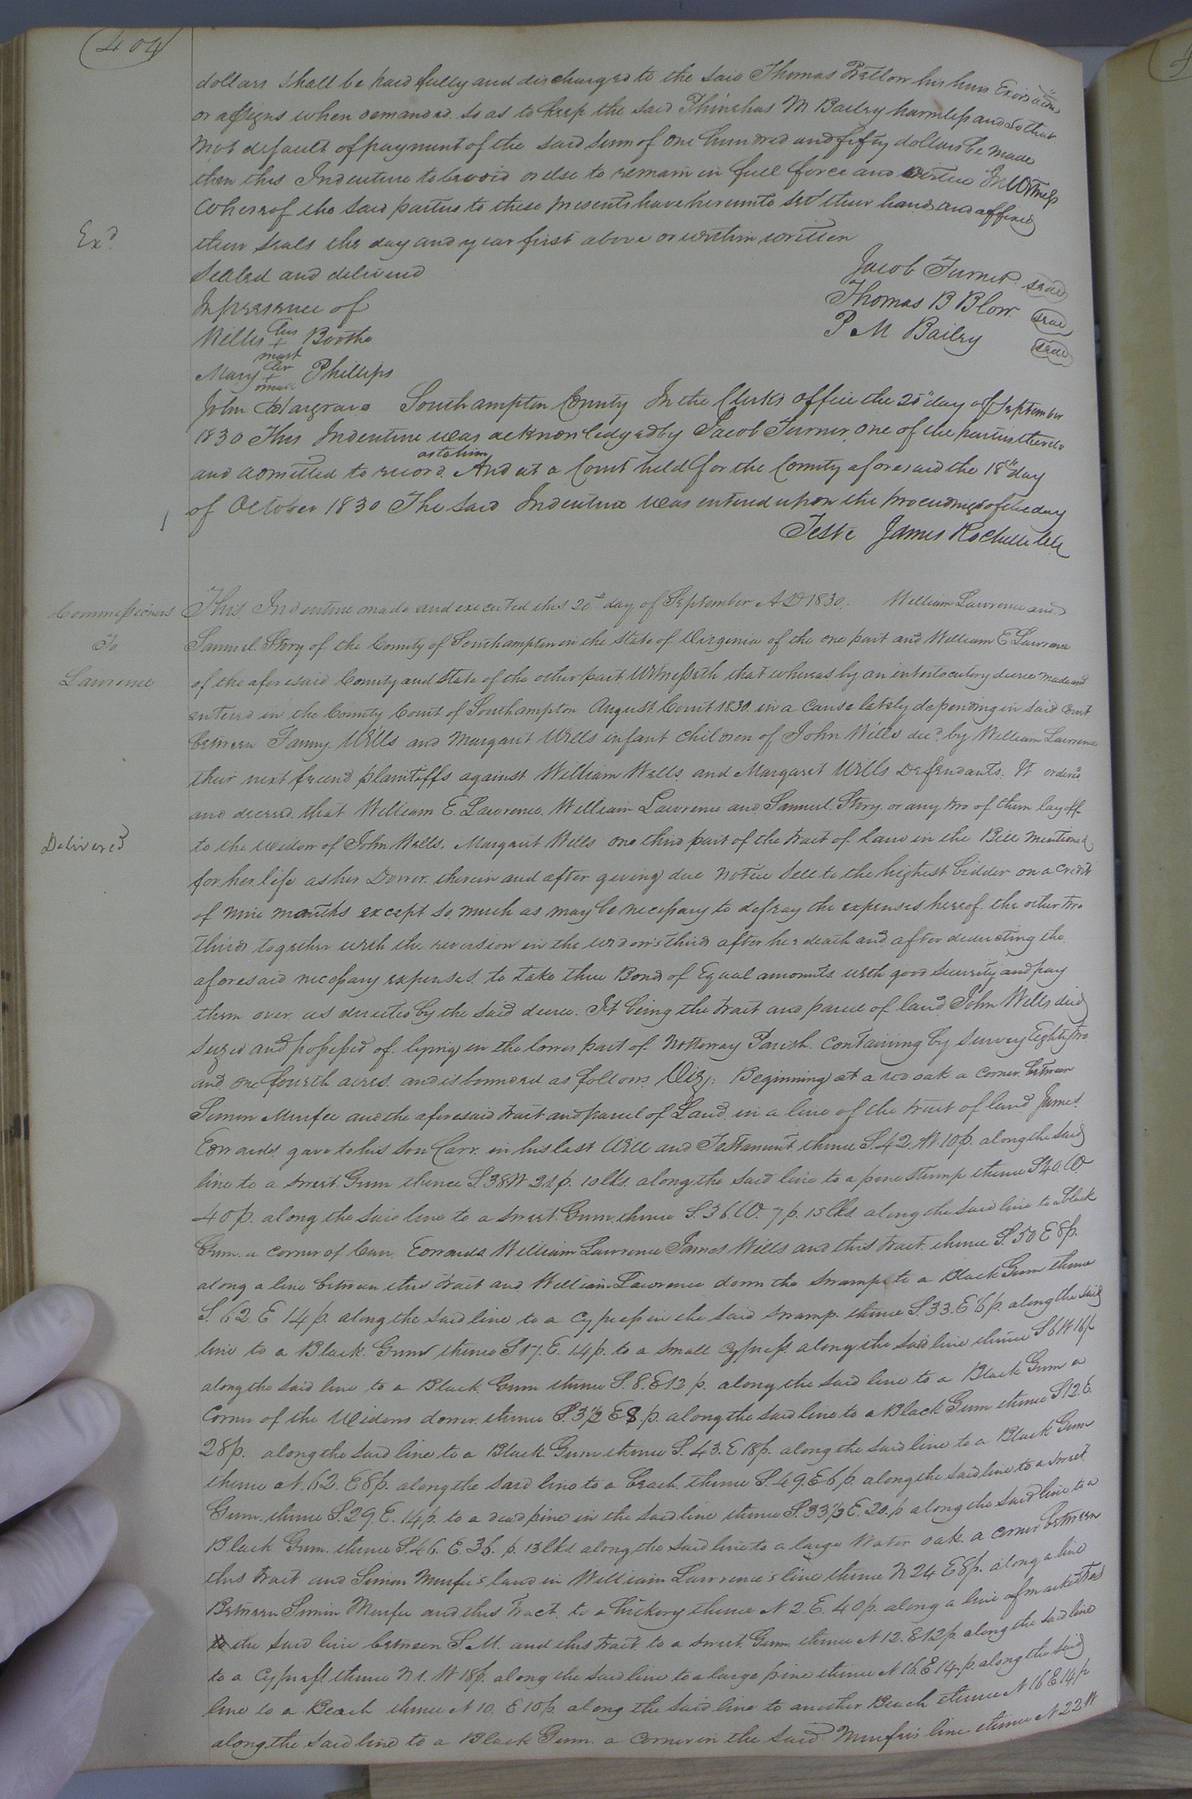 404
dollars shall be paid fully and discharged to the said Thomas Bellow his heirs Exors adms
or assigns when demanded so as to keep the said Phinehas M Bailey harmless and so that
not default of payment of the said sum of one hundred and fifty dollars be made
then this Indenture to be void or else to remain in full force and virtue In Witness
Whereof the said parties to these presents have hereunto set their hands and affixed
Exd
their seals the day and year first above or within written
Sealed and delivered
Jacob Turner seal
In presence of
Thomas B Blow seal
Willis his + mark Boothe
P M Bailey seal
Mary her + mark Phillips
John Hargrave Southampton County In the Clerks office the 20th day of September
1830 This Indenture was acknowledged by Jacob Turner, one of the parties thereto
and admitted to record as to him And at a Court held for the County aforesaid the 18th day
of October 1830 The said Indenture was entered upon the proceedings of the day
Teste James Rochelle Clk
Commissioners
To
Lawrence
This Indenture made and executed this 20th day of September AD 1830. William Lawrence and
Samuel Story of the County of Southampton in the State of Virginia of the one part and William E Lawrence
of the aforesaid County and State of the other part Witnesseth that whereas by an interlocutory decree made and
entered in the County Court of Southampton August Court 1830. in a cause lately depending in said Court
between Fanny Wills and Margaret Wills infant children of John Wills decd by William Lawrence
their next friend plaintiffs against William Wells and Margaret Wills Defendants. It ordered
and decreed that William E. Lawrence, William Lawrence and Samuel Story or any two of them lay off
Delivered
to the widow of John Wells. Margaret Wills one third part of the tract of land in the Bill mentioned
for her life as her Dower therein and after giving due notice sell to the highest bidder on a credit
of nine months except so much as may be necessary to defray the expenses hereof the other two
thirds together with the reversion in the widow's third after her death and after deducting the
aforesaid necessary expenses to take three Bonds of Equal amounts with good security and pay
them over as directed by the said decree. It being the tract and parcel of land John Wells died
seized and possessed of lying in the lower part of Nottoway Parish Containing by survey Eighty two
and one fourth acres and is bounded as follows Viz: Beginning at a red oak a corner between
Simon Murfee and the aforesaid tract and parcel of Land in a line of the tract of land James
Edwards gave to his son Carr in his last Will and Testament thence S. 42 W 10p. along the said
line to a Sweet Gum thence S. 38 W 21 p. 10 lks. along the said line to a pine stump thence S 40 W
40 p. along the said line to a sweet Gum thence S. 36 W. 7 p. 15 lks along the said line to a black
Gum a corner of Carr Edwards William Lawrence James Wills and this tract thence S. 50 E 8p.
along a line between this tract and William Lawrence down the swamp to a Black Gum thence
S. 62 E 14 p. along the said line to a Cypress in the said swamp thence S 33. E 6 p. along the said
line to a Black Gum thence S 17. E. 14 p. to a small Cypress along the said line thence S 6 W 16p
along the said line to a Black Gum thence S. 8. E 12 p. along the said line to a Black Gum a
Corner of the Widows dower thence S. 3 1/2 E 8 p. along the said line to a Black Gum thence S 12. E.
28 p. along the said line to a Black Gum thence S. 43. E 18 p. along the said line to a Black Gum
thence N. 62. E 8p. along the said line to a beach thence S. 49. E 6 p. along the said line to a sweet
Gum thence S. 29 E. 14 p. to a dead pine in the said line thence S. 33 1/2 E. 20. p along the said line to a
Black Gum thence S. 46. E 36. p. 13 lks along the said line to a large Water oak a corner between
this tract and Simon Murfee's land in William Lawrence's line thence N 24 E 8p. along a line
Between Simon Murfee and this tract to a hickory thence N 2. E. 40 p. along a line of marked trees
the said line between S. M. and this tract to a sweet Gum thence N 12. E 12 p along the said line
to a Cypress thence N 1. W 18p. along the said line to a large pine thence N 16. E 14 p. along the said
line to a Beach thence N 10. E 10 p. along the said line to another Beach thence N 16 E 14 p
along the said line to a Black Gum a corner in the said Murfee's line thence N 22 W